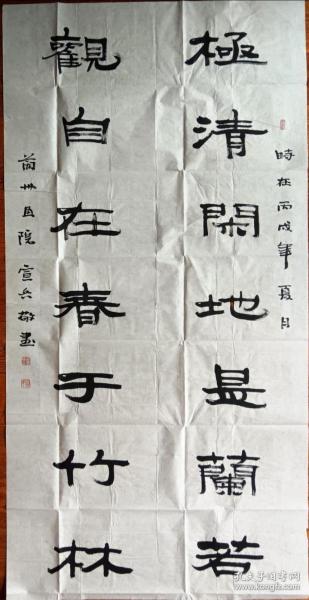 時在丙戌年夏月
極清閑地是蘭若
觀自在春于竹林
宣兵敬书
孔夫子旧书网